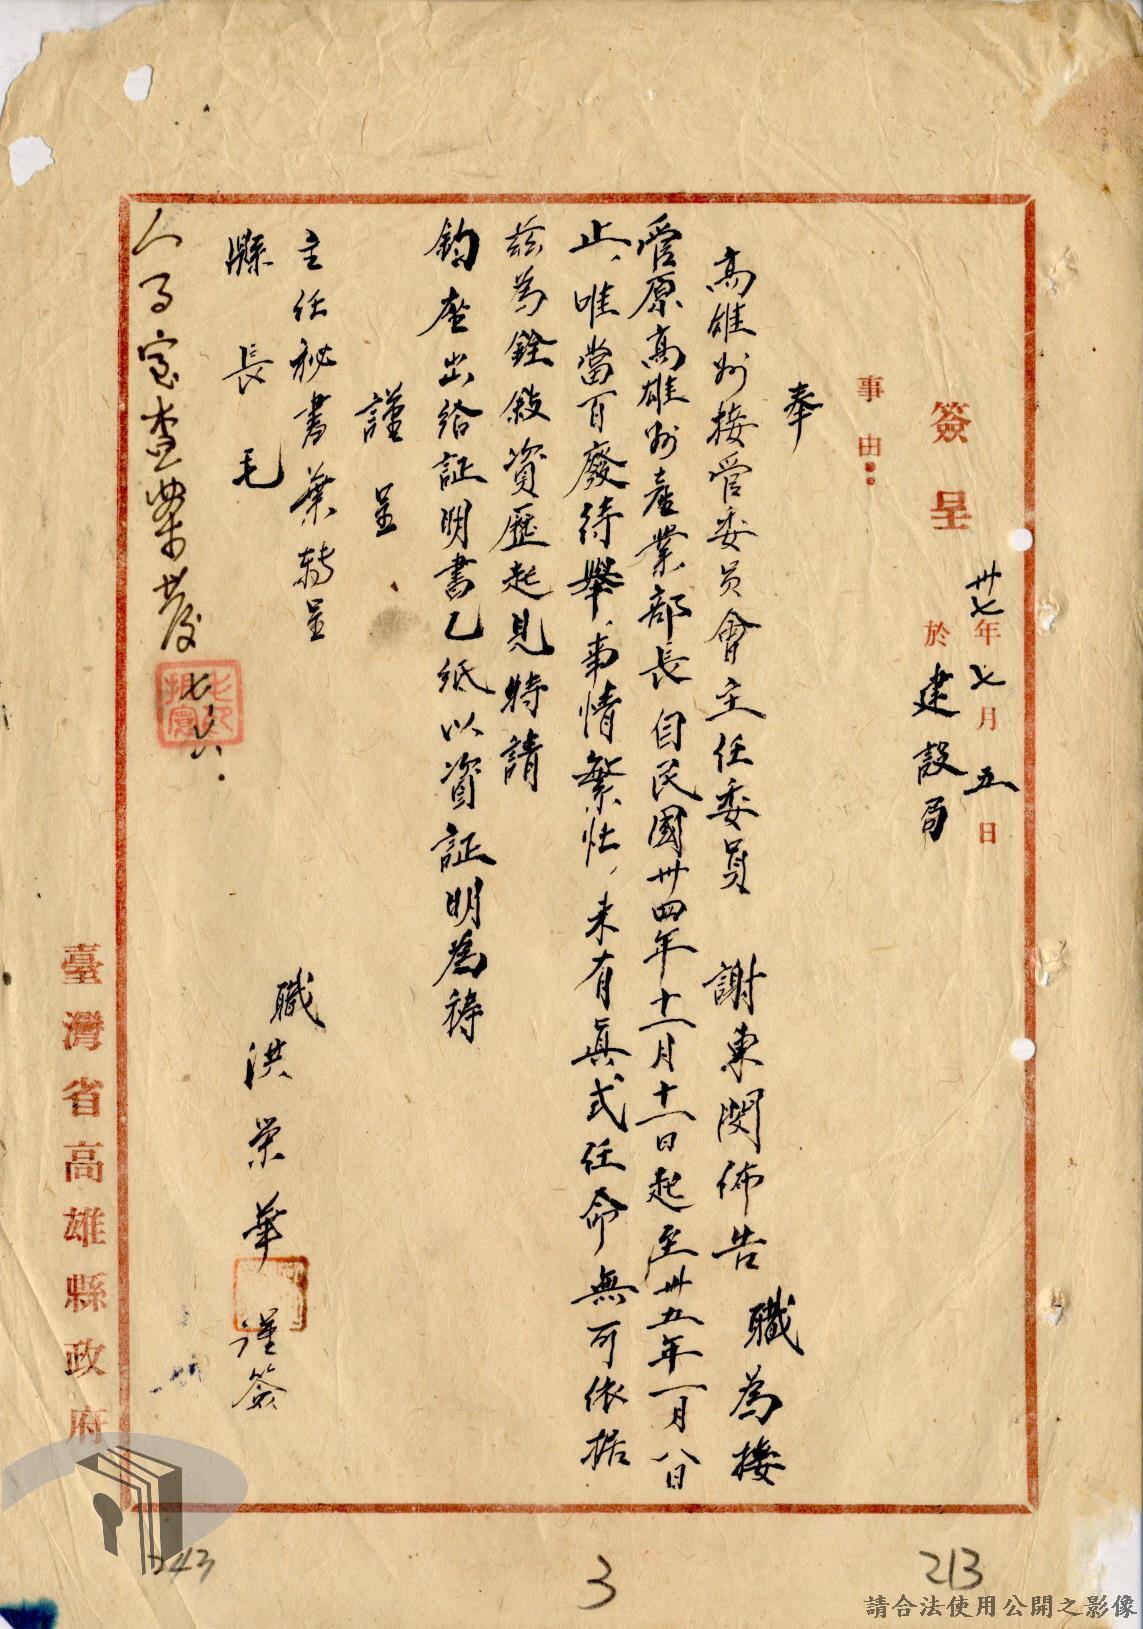 簽呈
卅七年七月五日
於建設局
事由：
奉
高雄州接管委員會主任委員 謝東閔佈告 職為接
管原高雄州產業部長自民國卅四年十一月十一日起至卅五年一月八日
止、唯當百廢待舉、事情繁忙、未有真式任命無可依据
茲為銓敘資歷起見特請
鈞座出給証明書乙紙以資証明為祷
謹呈
主任秘書葉轉呈
縣長毛
職洪榮華謹簽
人事室查案
七、六.
臺灣省高雄縣政府
243
3
213
請合法使用公開之影像